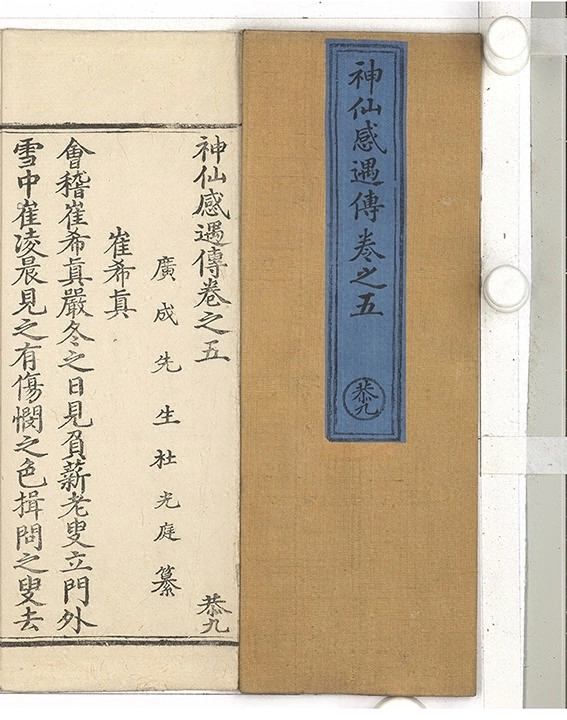 神仙感遇傳卷之五
恭九
神仙感遇傳卷之五 恭九
廣成先生杜光庭纂
崔希真
會稽崔希眞嚴冬之日見負薪老叟立門外
雪中崔凌晨見之有傷憫之色揖問之叟去